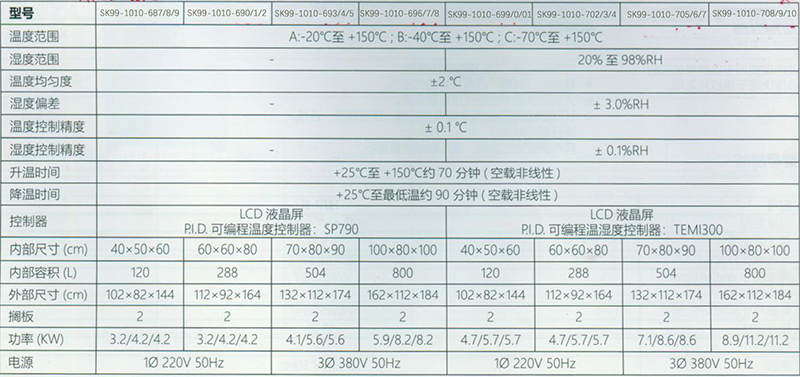 型号 SK99-1010-687/8/9 SK99-1010-690/1/2 SK99-1010-693/4/5 SK99-1010-696/7/8 SK99-1010-699/0/01 SK99-1010-702/3/4 SK99-1010-705/6/7 SK99-1010-708/9/10
温度范围 A:-20℃至 +150℃ ; B:-40℃至 +150℃ ; C:-70℃至 +150℃
湿度范围 - 20% 至 98%RH
温度均匀度 ±2 ℃
湿度偏差 - ± 3.0%RH
温度控制精度 ± 0.1 ℃
湿度控制精度 - ± 0.1%RH
升温时间 +25℃至 +150℃约 70 分钟 ( 空载非线性 )
降温时间 +25℃至最低温约 90 分钟 ( 空载非线性 )
控制器 LCD 液晶屏 LCD 液晶屏
P.I.D. 可编程温度控制器：SP790 P.I.D. 可编程温湿度控制器：TEMI300
内部尺寸 (cm) 40×50×60 60×60×80 70×80×90 100×80×100 40×50×60 60×60×80 70×80×90 100×80×100
内部容积 (L) 120 288 504 800 120 288 504 800
外部尺寸 (cm) 102×82×144 112×92×164 132×112×174 162×112×184 102×82×144 112×92×164 132×112×174 162×112×184
搁板 2 2 2 2 2 2 2 2
功率 (KW) 3.2/4.2/4.2 3.2/4.2/4.2 4.1/5.6/5.6 5.9/8.2/8.2 4.7/5.7/5.7 4.7/5.7/5.7 7.1/8.6/8.6 8.9/11.2/11.2
电源 1Ø 220V 50Hz 3Ø 380V 50Hz 1Ø 220V 50Hz 3Ø 380V 50Hz